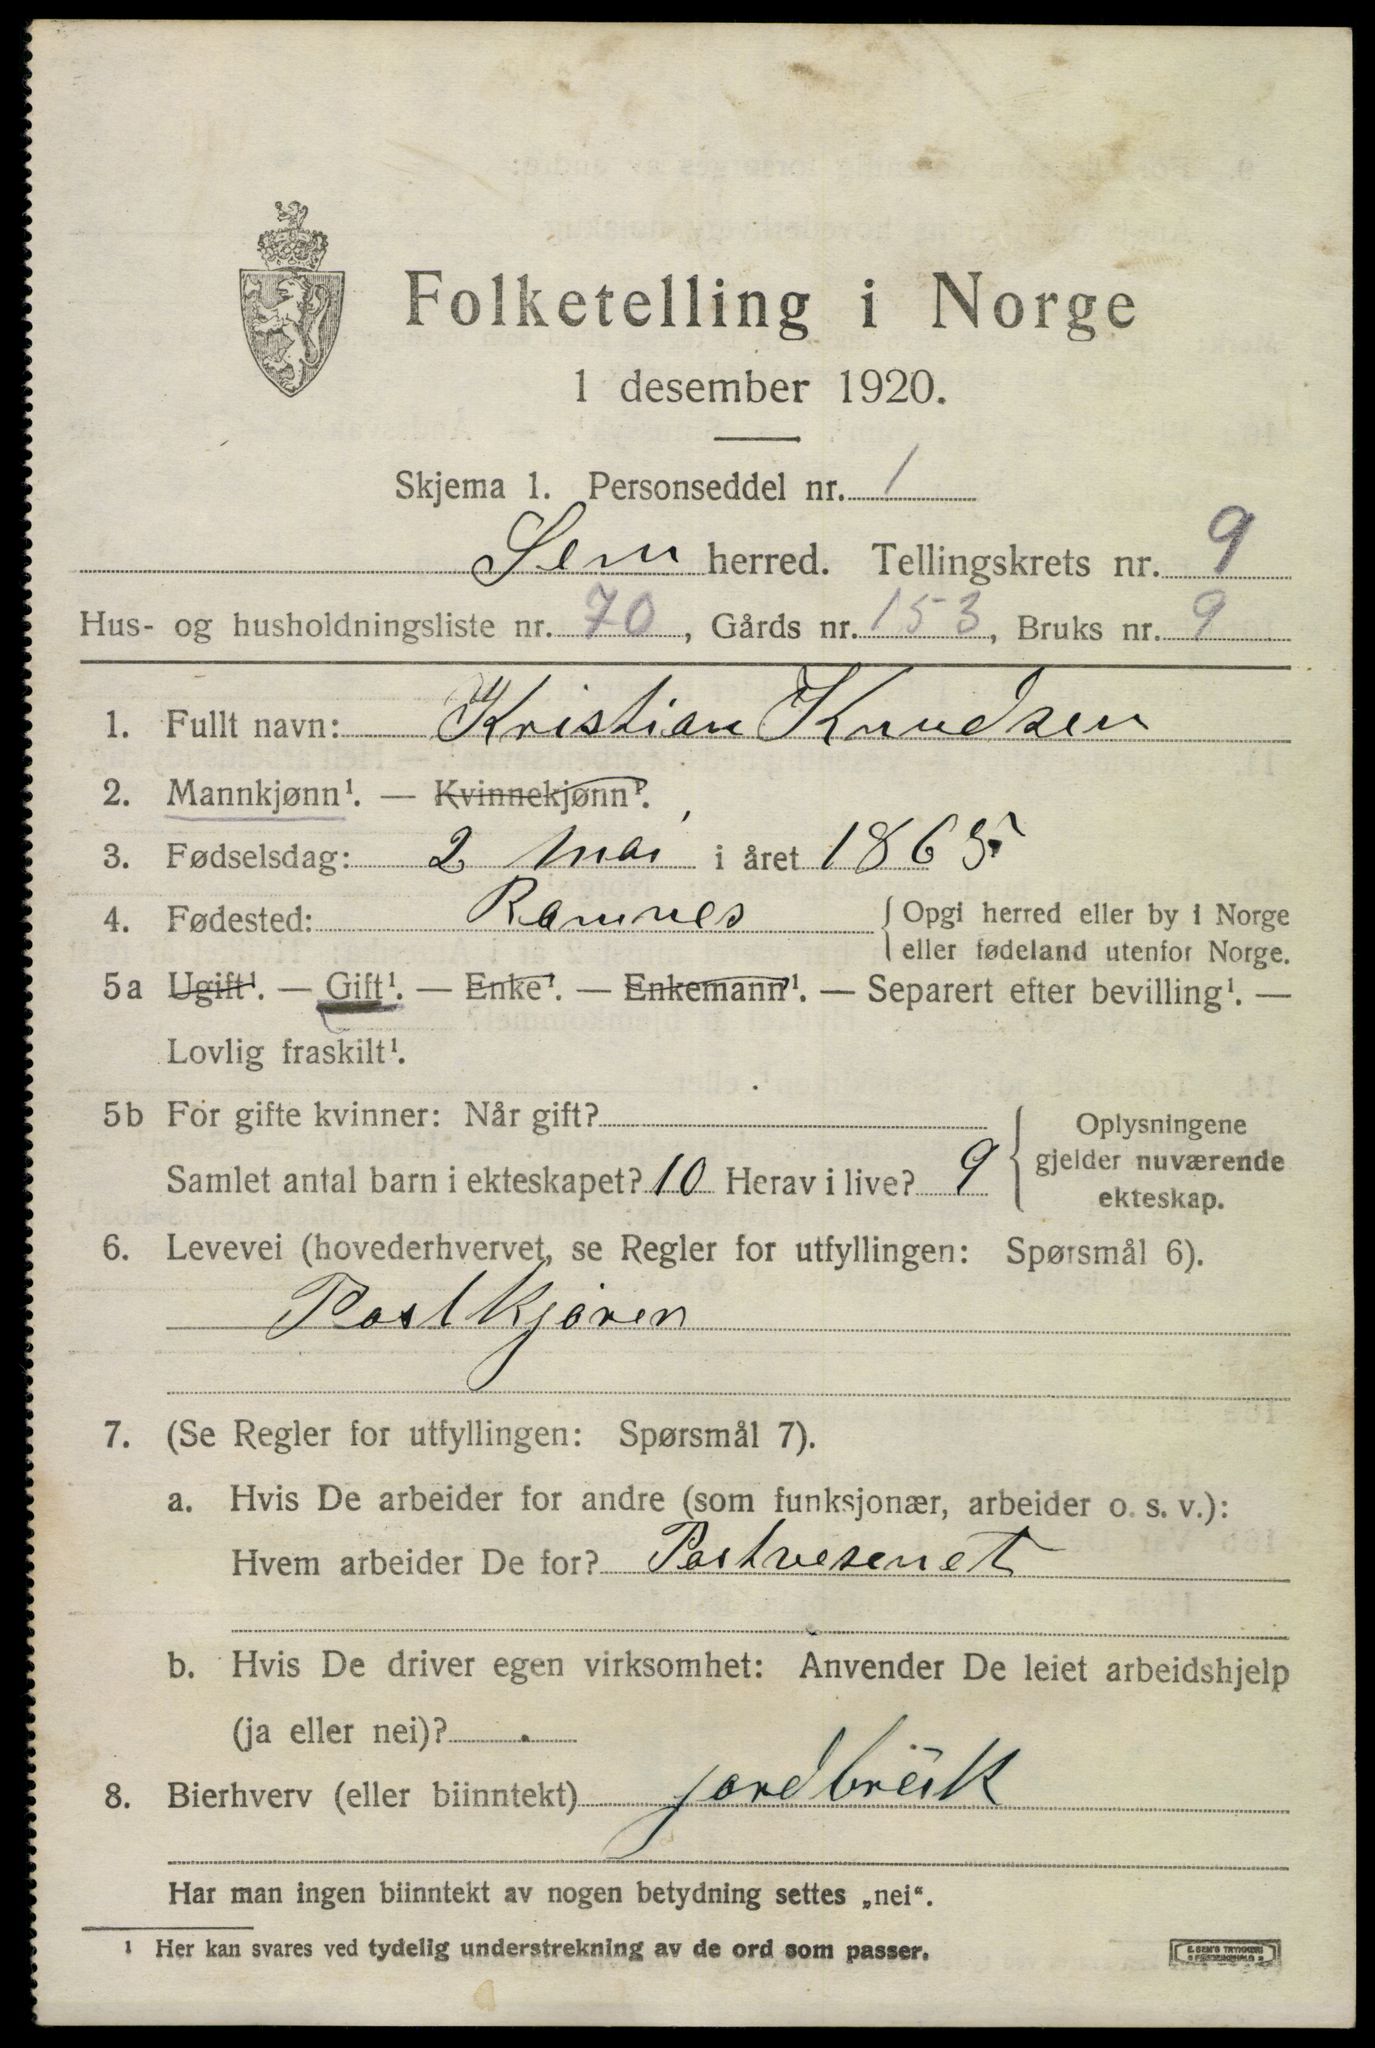 Folketelling i Norge
1 desember 1920.
Skjema 1. Personseddel nr. 1
Sem herred. Tellingskrets nr. 9
Hus- og husholdningsliste nr. 70, Gårds nr. 153, Bruks nr. 9
1. Fullt navn: Kristian Knudsen
2. Mannkjønn¹. — Kvinnekjønn¹.
3. Fødselsdag: 2 mai i året 1865
4. Fødested: Ramnes { Opgi herred eller by i Norge
eller fødeland utenfor Norge.
5a Ugift¹. — Gift¹. — Enke¹. — Enkemann¹. — Separert efter bevilling¹. —
Lovlig fraskilt¹.
5b For gifte kvinner: Når gift?
Samlet antal barn i ekteskapet? 10 Herav i live? 9
{ Oplysningene
gjelder nuværende
ekteskap.
6. Levevei (hovederhvervet, se Regler for utfyllingen: Spørsmål 6).
Postkjører
7. (Se Regler for utfyllingen: Spørsmål 7).
a. Hvis De arbeider for andre (som funksjonær, arbeider o. s. v.):
Hvem arbeider De for? Postvesenet
b. Hvis De driver egen virksomhet: Anvender De leiet arbeidshjelp
(ja eller nei)?
8. Bierhverv (eller biinntekt) jordbruk
Har man ingen biinntekt av nogen betydning settes „nei“.
¹ Her kan svares ved tydelig understrekning av de ord som passer.